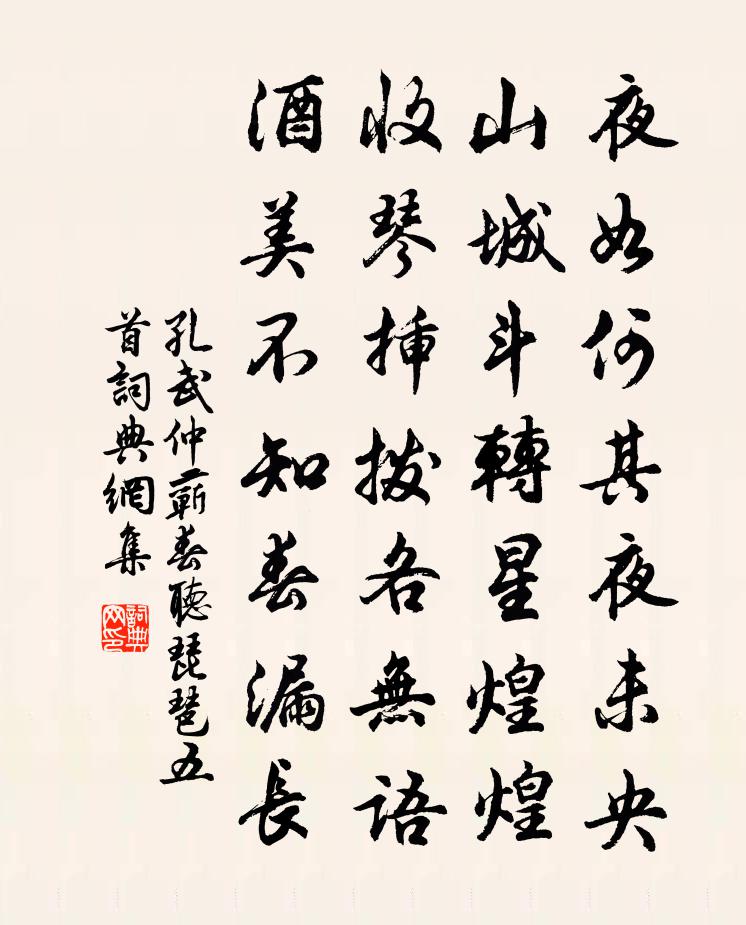 夜如何其夜未央
山城斗轉星煌煌
收琴揷撥各無語
酒美不知春漏長
孔武仲蘄春聽琵琶五
首詞典網集
詞典网印